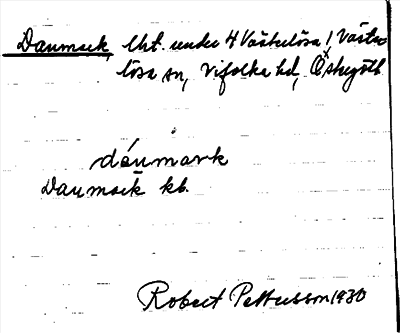 Danmark, lht. under 4 Västerlösa, Väster-
lösa sn, Vifolka hd, Östergötl.
dánmark
Danmark kb.
Robert Pettersson 1930